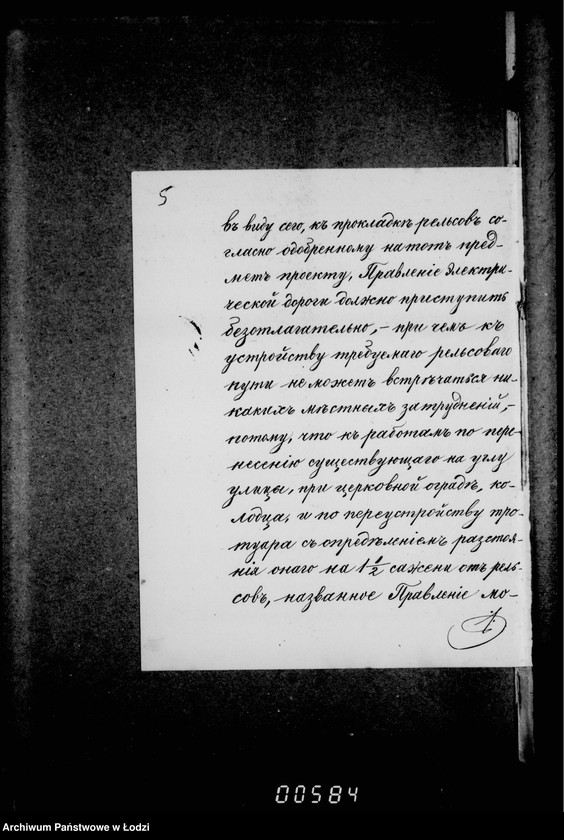 5
въ виду сего, къ прокладкѣ рельсовъ со-
гласно одобренному на тотъ пред-
метъ проекту, Правленіе Электри-
ческой дороги должно приступить
безотлагательно,- при чемъ къ
устройству требуемаго рельсоваго
пути не можетъ встрѣчаться ни-
какихъ мѣстныхъ затрудненій,-
потому, что къ работамъ по пере-
несенію существующаго на углу
улицы, при церковной оградѣ, ко-
лодца, и по переустройству тро-
туара съ опредѣленіемъ разстоя-
нія онаго на 1 1/2 сажени отъ рель-
совъ, названное Правленіе мо-
00584
Archiwum Państwowe w Łodzi